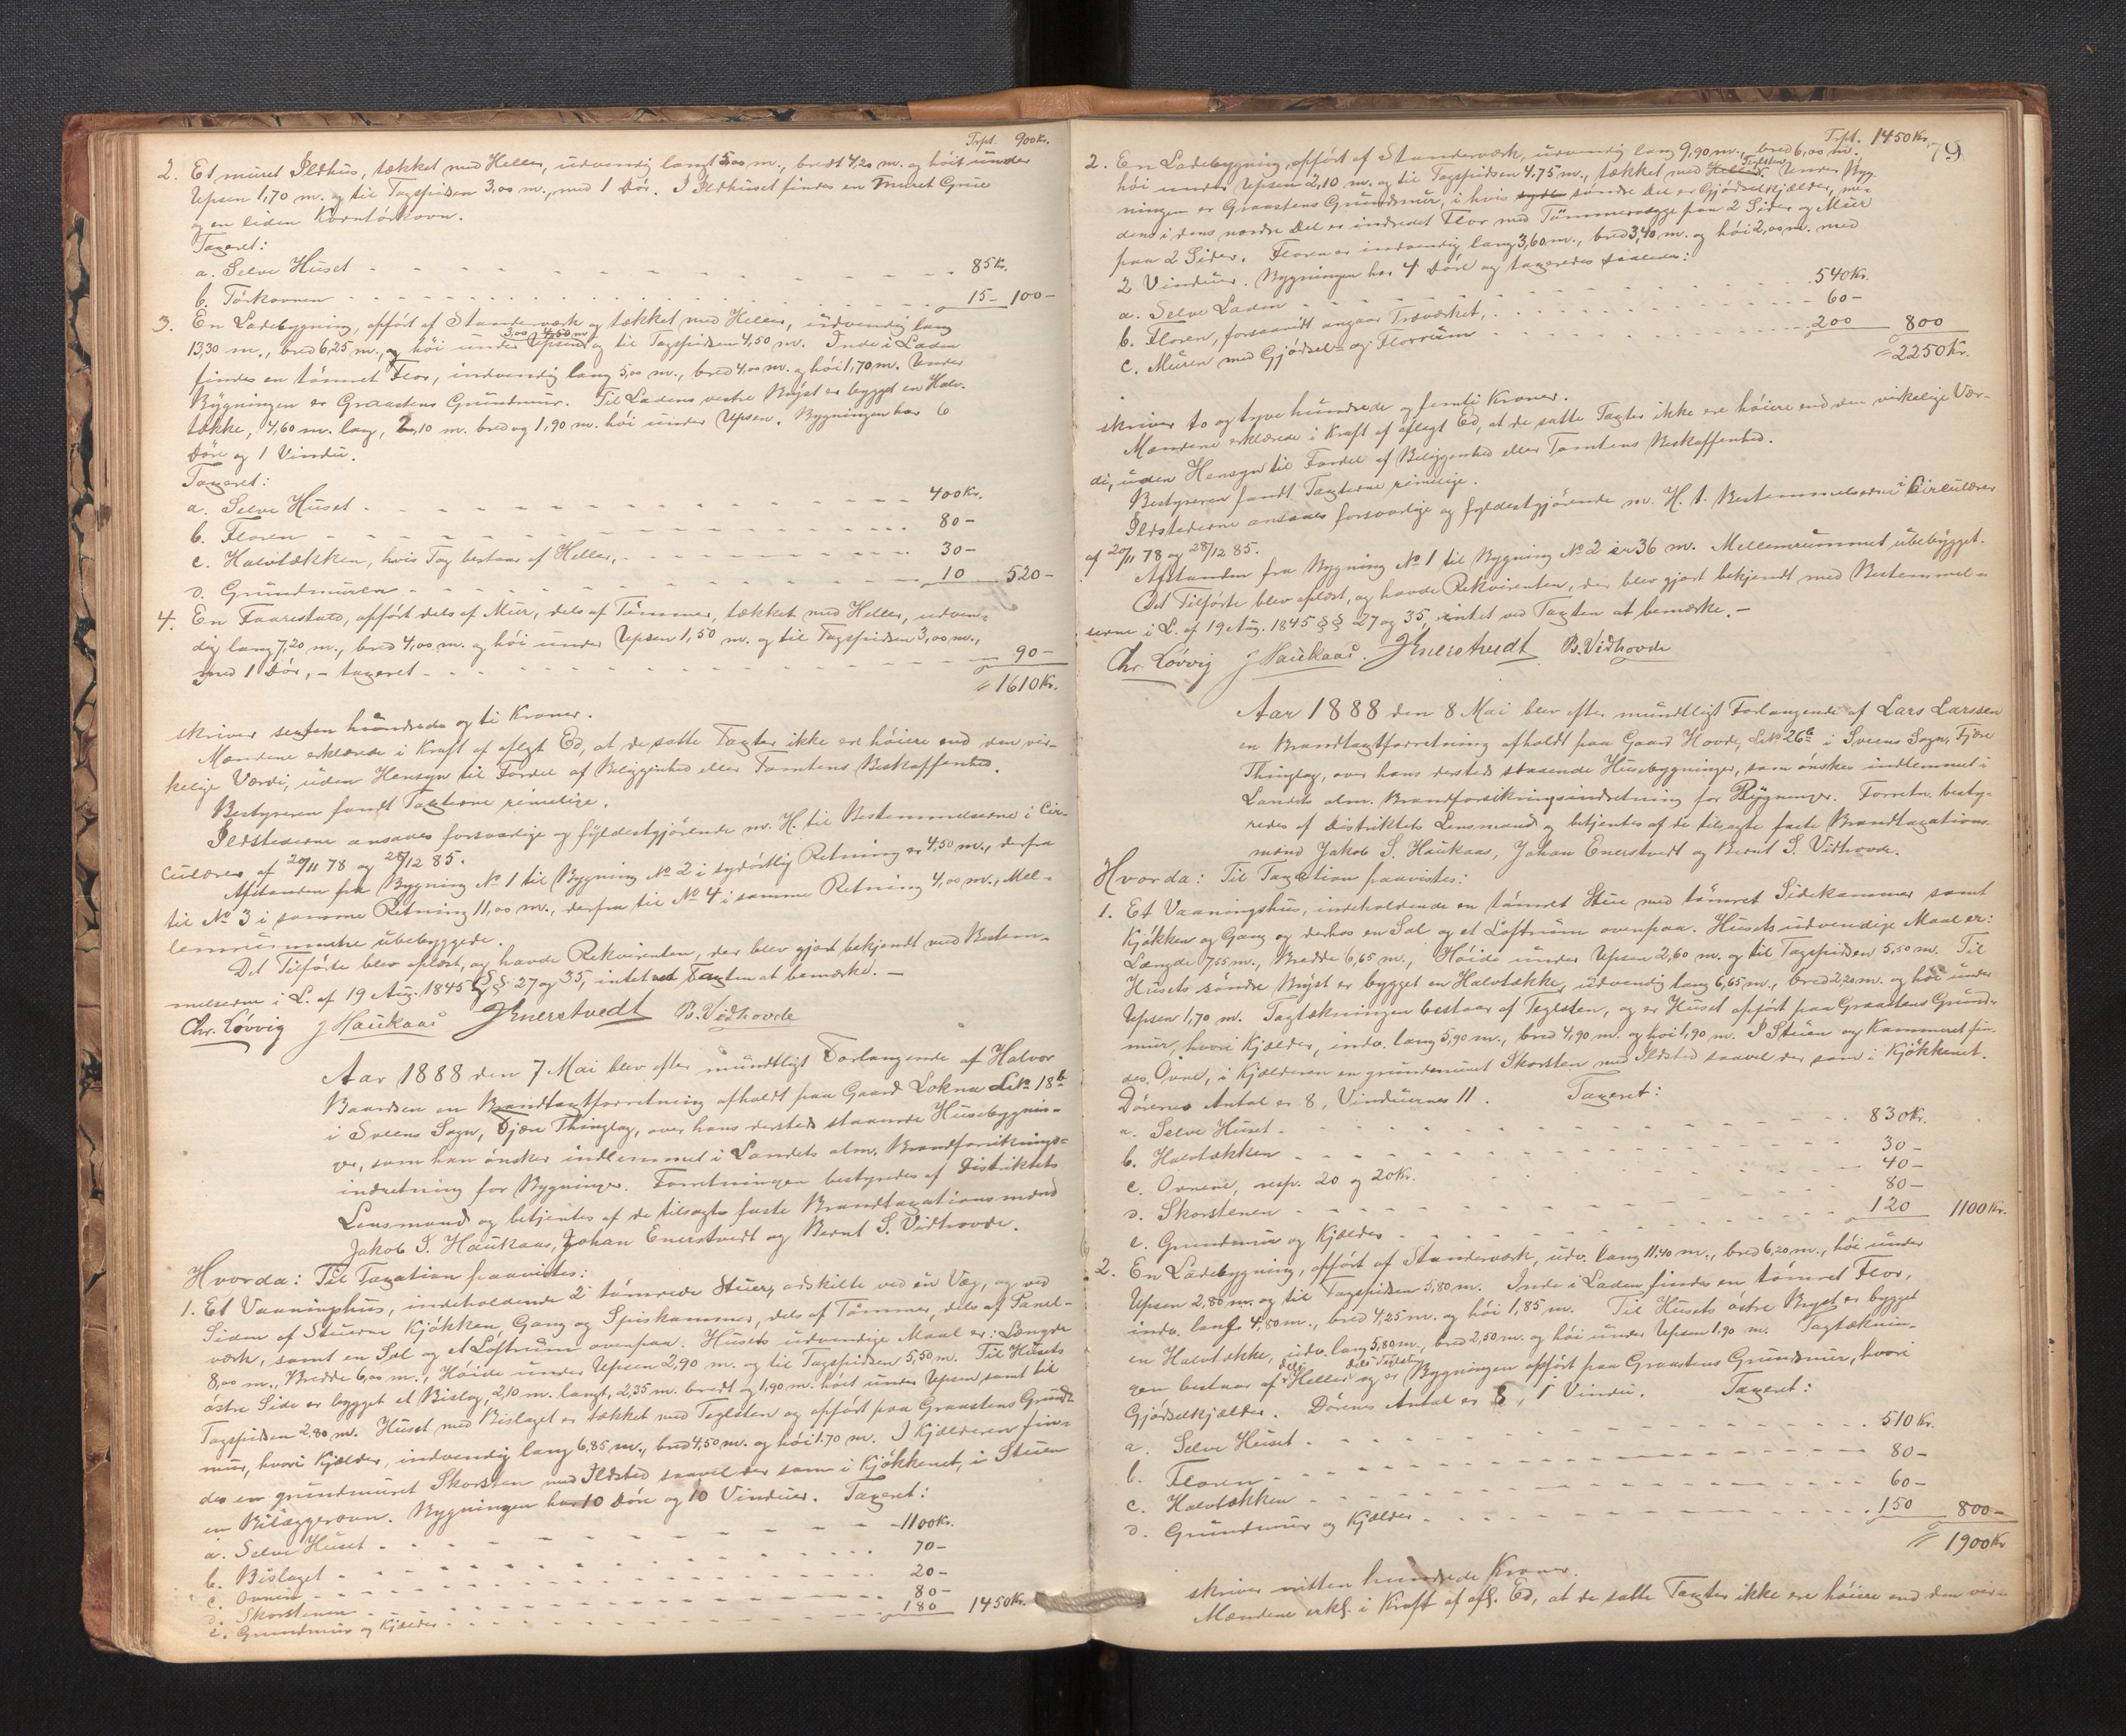 Trpt. 900Kr.
2. Et muret Ildhus, tækket med Heller, udvendig langt 5,00 m., bredt 4,20 m. og höit under
Upsen 1,70 m. og til Tagspidsen 3,00 m., med 1 Dör. I Ildhuset findes en muret Grue
og en liden Korntörkovn.
Taxeret:
a. Selve Huset - - - 85 Kr.
b. Törkovnen - - - 15 - 100 -
3. En Ladebygning, opfört af Standerværk og tækket med Heller, udvendig lang
13,30 m., bred 6,25 m., og höi under Upsen 3,00 m og til Tagspidsen 4,50 m. Inde i Laden
findes en tömret Flor, indvendig lang 5,00 m., bred 4,00 m. og höi 1,70 m. Under
Bygningen er Graastens Grundmur. Til Ladens vestre Bryst er bygget en Halv-
tække, 4,60 m. lang, 2,10 m. bred og 1,90 m. höi under Upsen. Bygningen har 6
Döre og 1 Vindu.
Taxeret:
a. Selve Huset - - - 400 Kr.
b. Floren - - - 80 -
c. Halvtækken, hvis Tag bestaar af Heller, - - - 30 -
d. Grundmuren - - - 10 520 -
4. En Faarestald, opfört dels af Mur, dels af Tömmer, tækket med Heller, udven-
dig lang 7,20 m., bred 4,00 m. og höi under Upsen 1,50 m. og til Tagspidsen 3,00 m.,
med 1 Dör, - taxeret - - - 90 -
1610 Kr.
skriver sexten hundrede og ti Kroner.
Mændene erklærede i Kraft af aflagt Ed, at de satte Taxter ikke ere höiere end den vir-
kelige Værdi, uden Hensyn til Fordel af Beliggenhed eller Tomtens Beskaffenhed.
Bestyreren fandt Taxterne rimelige.
Ildstederne ansaaes forsvarlige og fyldestgjörende m. H. til Bestemmelserne i Cir-
culærer af 20/11 78 og 28/12 85.
Afstanden fra Bygning No 1 til Bygning No 2 i sydöstlig Retning er 4,50 m., derfra
til No 3 i samme Retning 11,00 m., derfra til No 4 i samme Retning 4,00 m., Mel-
lemrummene ubebyggede.
Det Tilförte blev oplæst, og havde Rekvirenten, der blev gjort bekjendt med Bestem-
melserne i L. af 19 Aug. 1845 §§ 27 og 35, intet ved Taxten at bemærke. -
Chr. Lövvig J Haukaas JEnerstvedt B. Vidhovde
Aar 1888 den 7 Mai blev efter mundtligt Forlangende af Halvor
Baardsen en Brandtaxtforretning afholdt paa Gaard Lokna LNo 18b
i Sveens Sogn, Fjære Thinglag, over hans dersteds staaende Husebygnin-
ger, som han önsker indlemmet i Landets alm. Brandforsikrings-
indretning for Bygninger. Forretningen bestyredes af Distriktets
Lensmand og betjentes af de tilsagte faste Brandtaxationsmænd
Jakob S. Haukaas, Johan Enerstvedt og Bernt S. Vidhovde.
Hvorda: Til Taxation paavistes:
1. Et Vaaningshus, indeholdende 2 tömrede Stuer, adskilte ved en Væg, og ved
Siden af Stuerne Kjökken, Gang og Spiskammer, dels af Tömmer, dels af Panel-
værk, samt en Sal og et Loftrum ovenpaa. Husets udvendige Maal er: Længde
8,00 m., Bredde 6,00 m., Höide under Upsen 2,90 m. og til Tagspidsen 5,50 m. Til Husets
östre Side er bygget et Bislag, 2,10 m. langt, 2,35 m. bredt og 1,90 m. höit under Upsen samt til
Tagspidsen 2,80 m. Huset med Bislaget er tækket med Teglsten og opfört paa Graastens Grund-
mur, hvori Kjælder, indvendig lang 6,85 m., bred 4,50 m. og höi 1,70 m. I Kjælderen fin-
des en grundmuret Skorsten med Ildsted saavel der som i Kjökkenet, i Stuen
en Bilæggerovn. Bygningen har 10 Döre og 10 Vinduer. Taxeret:
a. Selve Huset - - - 1100 Kr.
b. Bislaget - - - 70 -
c. Ovnen - - - 20 -
d. Skorstenen - - - 80 -
e. Grundmur og Kjælder - - - 180 1450 Kr.
Trpt. 1450 Kr.
79
2. En Ladebygning, opfört af Standerværk, udvendig lang 9,90 m., bred 6,00 m.
höi under Upsen 2,10 m. og til Tagspidsen 4,75 m., tækket med Heller Teglsten. Under Byg-
ningen er Graastens Grundmur, i hvis sydr söndre Del er Gjödselkjælder, me-
dens i dens nordre Del er indredet Flor med Tömmervægge paa 2 Sider og Mur
paa 2 Sider. Floren er indvendig lang 3,60 m., bred 3,40 m. og höi 2,00 m. med
2 Vinduer. Bygningen har 4 Döre og taxeredes saaledes:
a. Selve Laden - - - 540 Kr.
b. Floren, forsaavidt angaar Træværket, - - - 60 -
c. Muren med Gjödsel- og Florrum - - - 200 800
2250 Kr.
skriver to og tyve hundrede og femti Kroner.
Mændene erklærede i Kraft af aflagt Ed, at de satte Taxter ikke ere höiere end den virkelige Vær-
di, uden Hensyn til Fordel af Beliggenhed eller Tomtens Beskaffenhed.
Bestyreren fandt Taxterne rimelige.
Ildstederne ansaaes forsvarlige og fyldestgjörende m. H. t. Bestemmelserne i Circulærer
af 20/11 78 og 28/12 85.
Afstanden fra Bygning No 1 til Bygning No 2 er 36 m. Mellemrummet ubebygget.
Det Tilförte blev oplæst, og havde Rekvirenten, der blev gjort bekjendt med Bestemmel-
serne i L. af 19 Aug. 1845 §§ 27 og 35, intet ved Taxten at bemærke. -
Chr. Lövvig J Haukaas. JEnerstvedt B. Vidhovde
Aar 1888 den 8 Mai blev efter mundtligt Forlangende af Lars Larssen
en Brandtaxtforretning afholdt paa Gaard Hovde, LNo 26b i Sveens Sogn, Fjære
Thinglag, over hans dersteds staaende Husebygninger, som önskes indlemmet i
Landets alm. Brandforsikringsindretning for Bygninger. Forretn. besty-
redes af Distriktets Lensmand og betjentes af de tilsagte faste Brandtaxations-
mænd Jakob S. Haukaas, Johan Enerstvedt og Bernt S. Vidhovde.
Hvorda: Til Taxation paavistes:
1. Et Vaaningshus, indeholdende en tömret Stue med tömret Sidekammer samt
Kjökken og Gang og derhos en Sal og et Loftrum ovenpaa. Husets udvendige Maal er:
Længde 7,55 m., Bredde 6,65 m., Höide under Upsen 2,60 m. og til Tagspidsen 5,50 m. Til
Husets söndre Bryst er bygget en Halvtække, udvendig lang 6,65 m., bred 2,20 m. og höi under
Upsen 1,70 m. Tagtækningen bestaar af Teglsten, og er Huset opfört paa Graastens Grund-
mur, hvori Kjælder, indv. lang 5,90 m., bred 4,90 m. og höi 1,90 m. I Stuen og Kammeret fin-
des Ovne, i Kjælderen en grundmuret Skorsten med Ildsted saavel der som i Kjökkenet.
Dörenes Antal er 8, Vinduernes 11. Taxeret:
a. Selve Huset - - - 830 Kr.
b. Halvtækken - - - 30 -
c. Ovnene, resp. 20 og 20 Kr. - - - 40 -
d. Skorstenen - - - 80 -
e. Grundmur og Kjælder - - - 120 1100 Kr.
2. En Ladebygning, opfört af Standerværk, udv. lang 11,40 m., bred 6,20 m., höi under
Upsen 2,80 m. og til Tagspidsen 5,80 m. Inde i Laden findes en tömret Flor,
indv. lang 4,80 m., bred 4,25 m. og höi 1,85 m. Til Husets östre Bryst er bygget
en Halvtække, udv. lang 5,80 m., bred 2,50 m. og höi under Upsen 1,90 m. Tagtæknin-
gen bestaar af dels Heller dels Teglsten og er Bygningen opfört paa Graastens Grundmur, hvori
Gjödselkjælder. Dörenes Antal er 8, 1 Vindu. Taxeret:
a. Selve Huset - - - 510 Kr.
b. Floren - - - 80 -
c. Halvtækken - - - 60 -
d. Grundmur og Kjælder - - - 150 800 -
1900 Kr
skriver nitten hundrede Kroner.
Mændene erkl. i Kraft af afl. Ed, at de satte Taxter ikke ere höiere end den vir-